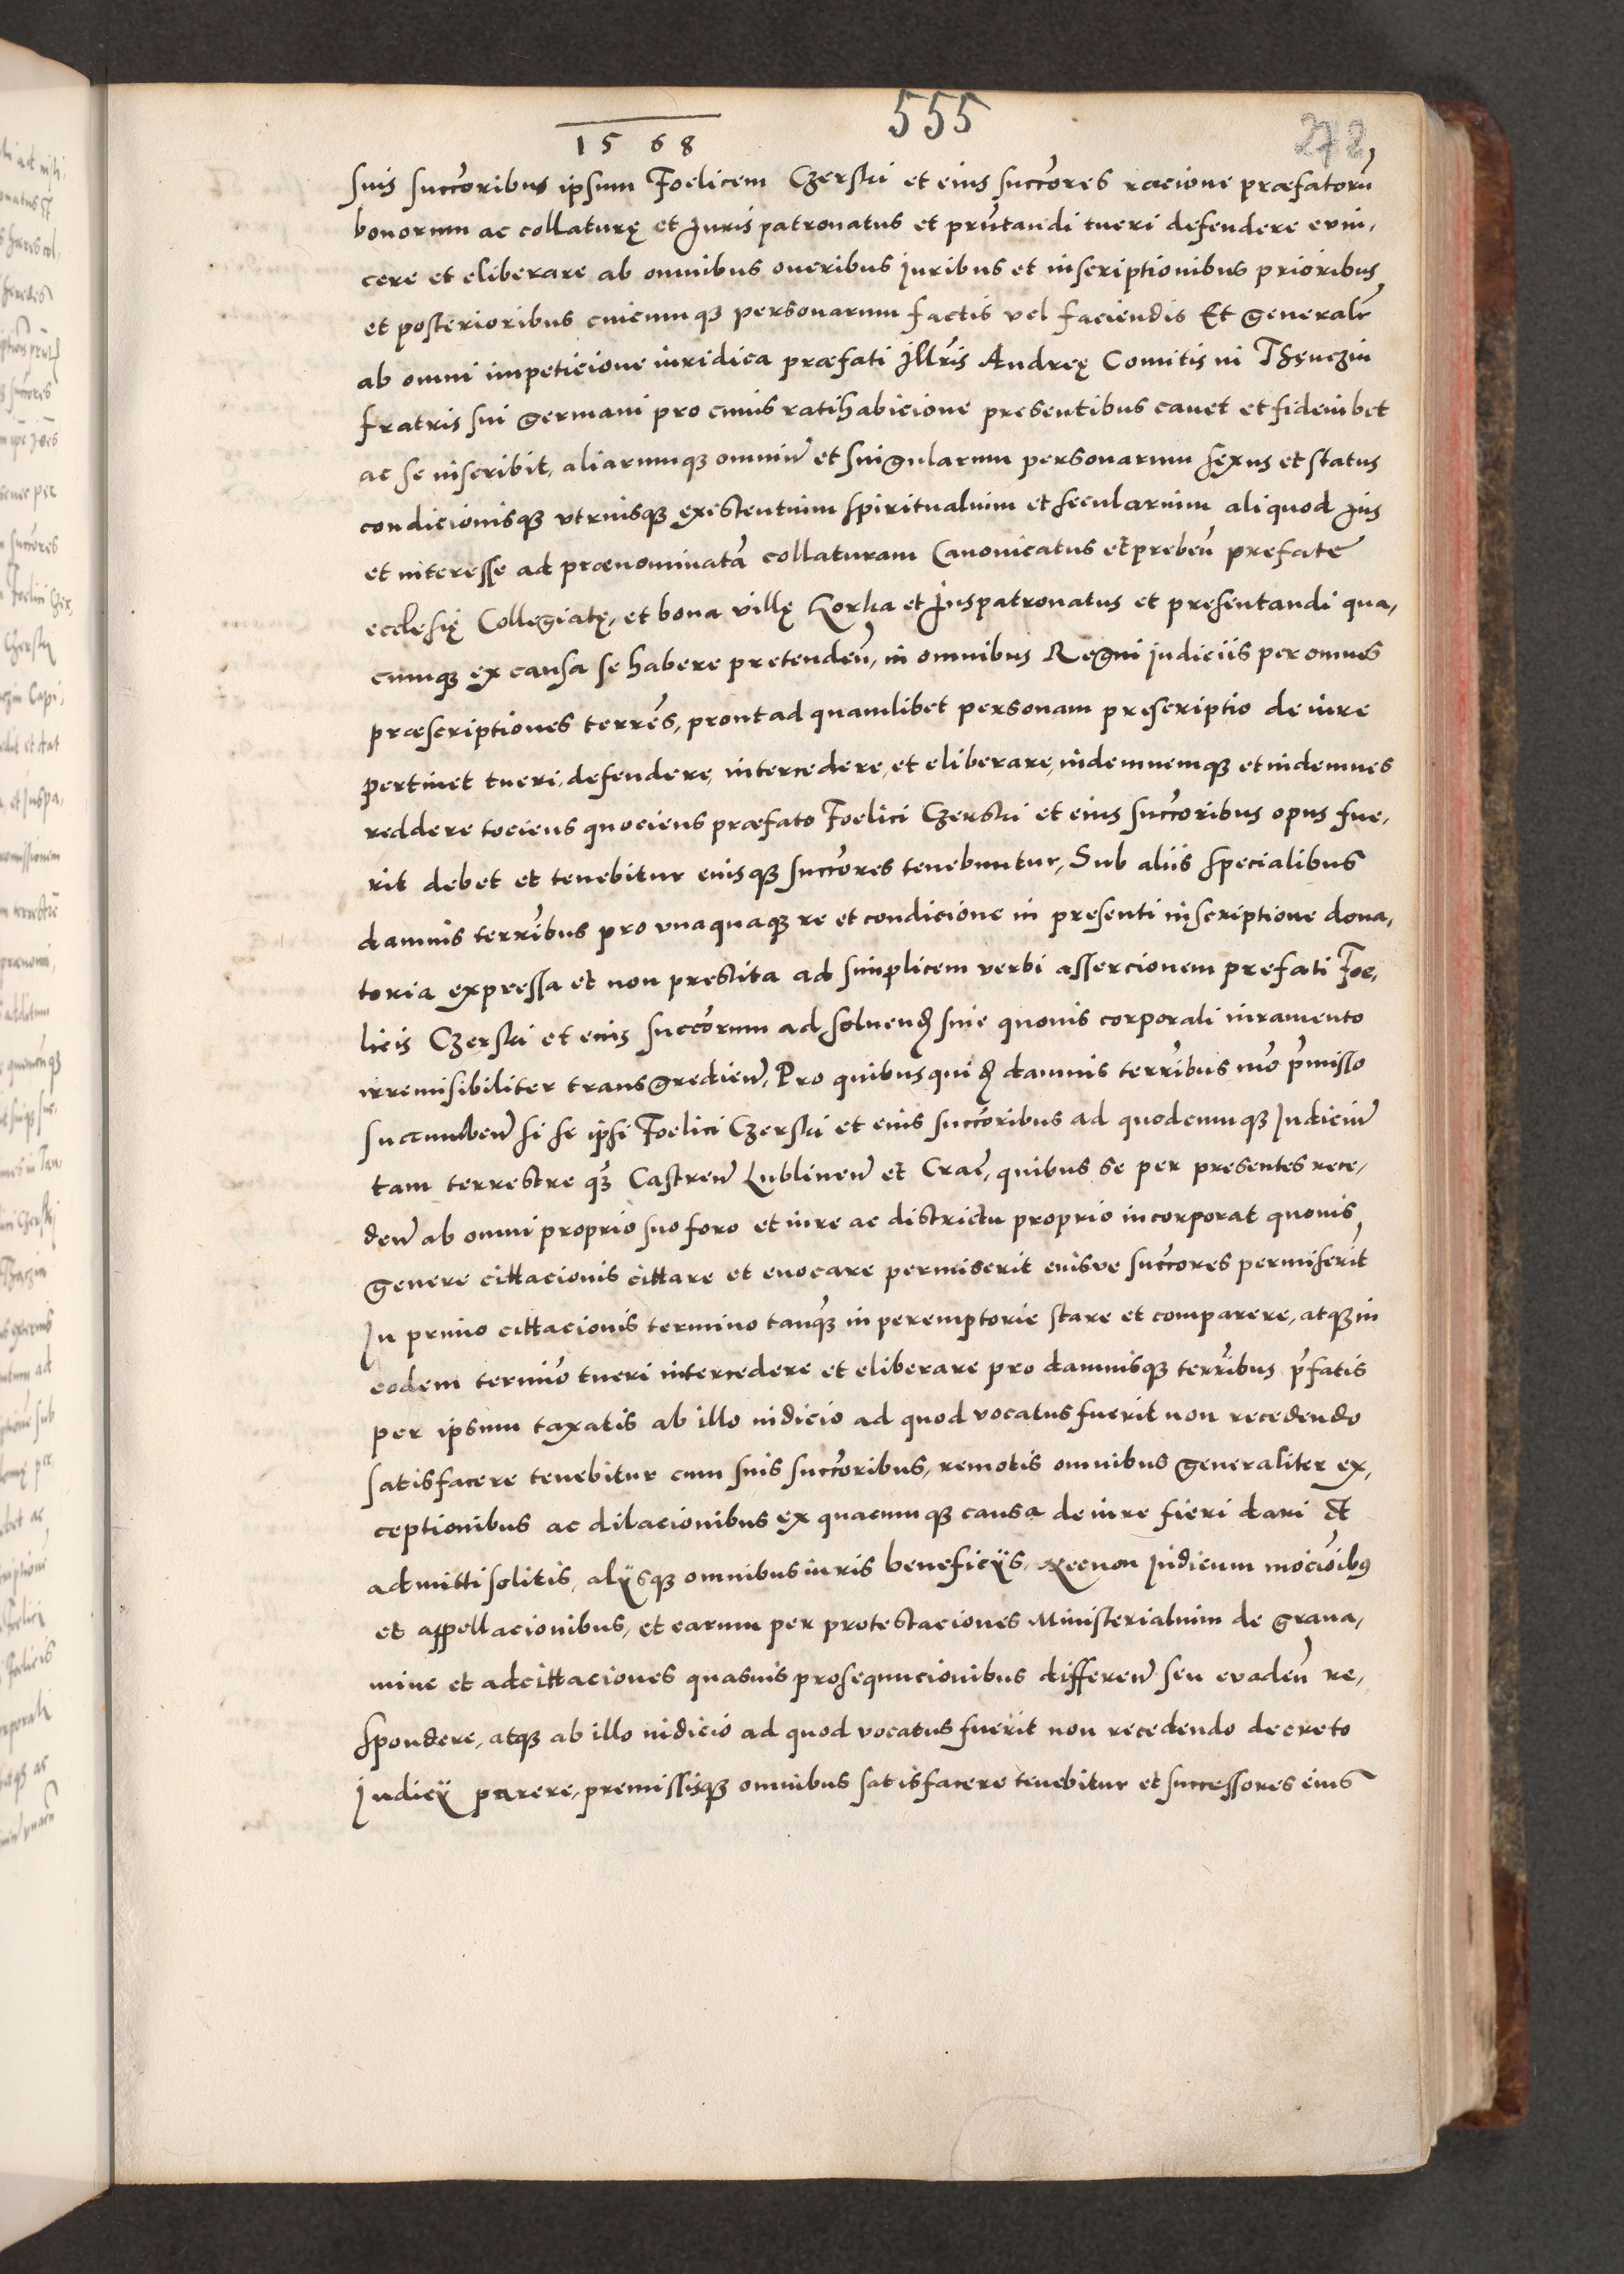 555
278
1568
suis succ̃oribus ipsum Foelicem Czerski et eius succ̃ores racione præfatorũ
bonorum ac collaturę et Juris patronatus et prñtandi tueri defendere evin,
cere et eliberare ab omnibus oneribus iuribus et inscriptionibus prioribus
et posterioribus cuicumqȝ personarum factis vel faciendis Et generalr̃
ab omni impeticione iuridica præfati Illr̃is Andreę Comitis in Thęnczin
fratris sui germani pro cuius ratihabicione presentibus cavet et fideiubet
ac se inscribit, aliarumqȝ omniũ et singularum personarum sexus et status
condicionisqȝ vtriusqȝ existentium spiritualium et secularium aliquod Jus
et interesse ad prænominatã collaturam Canonicatus et prebeñ prefate
ecclesię Collegiatę, et bona villę Korka et Juspatronatus et presentandi qua,
cumqȝ ex causa se habere pretendeñ, in omnibus Regni iudiciis per omnes
præscriptiones terrẽs, prout ad quamlibet personam prescriptio de iure
pertinet tueri, defendere, intercedere, et eliberare, indemnemqȝ et indemnes
reddere tociens quociens præfato Foelici Czerski et eius succ̃oribus opus fue,
rit debet et tenebitur eiusqȝ succ̃ores tenebuntur, Sub aliis specialibus
damnis terrĩbus pro vnaquaqȝ re et condicione in presenti inscriptione dona,
toria expressa et non prestita ad simplicem verbi assercionem prefati Foe,
licis Czerski et eius succ̃orum ad solvend̃ sine quovis corporali iuramento
irremisibiliter transgredieñ, Pro quibusquid̃ damnis terrĩbus mõ p̃misso
succumbeñ si se ipsi Foelici Czerski et eius succ̃oribus ad quodcumqȝ Iudiciũ
tam terrestre qȝ̃ Castreñ Lublineñ et Crac̃, quibus se per presentes rece,
deñ ab omni proprio suo foro et iure ac districtu proprio incorporat quovis
genere cittacionis cittare et evocare permiserit eiusve succ̃ores permiserit
In primo cittacionis termino tanqȝ̃ in peremptorie stare et comparere, atqȝ in
eodem terminõ tueri intercedere et eliberare pro damnisqȝ terrĩbus p̃fatis
per ipsum taxatis ab illo iudicio ad quod vocatus fuerit non recedendo
satisfacere tenebitur cum suis succ̃oribus, remotis omnibus generaliter ex,
ceptionibus ac dilacionibus ex quacumqȝ causa de iure fieri dari et
admitti solitis, alÿsqȝ omnibus iuris beneficÿs, Necnon Iudicum mocioĩbꝰ
et appellacionibus, et earum per protestaciones Ministerialium de grava,
mine et adcittaciones quasvis prosequucionibus differeñ seu evadeñ re,
spondere, atqȝ ab illo iudicio ad quod vocatus fuerit non recedendo decreto
Iudicÿ parere, premissisqȝ omnibus satisfacere tenebitur et successores eius